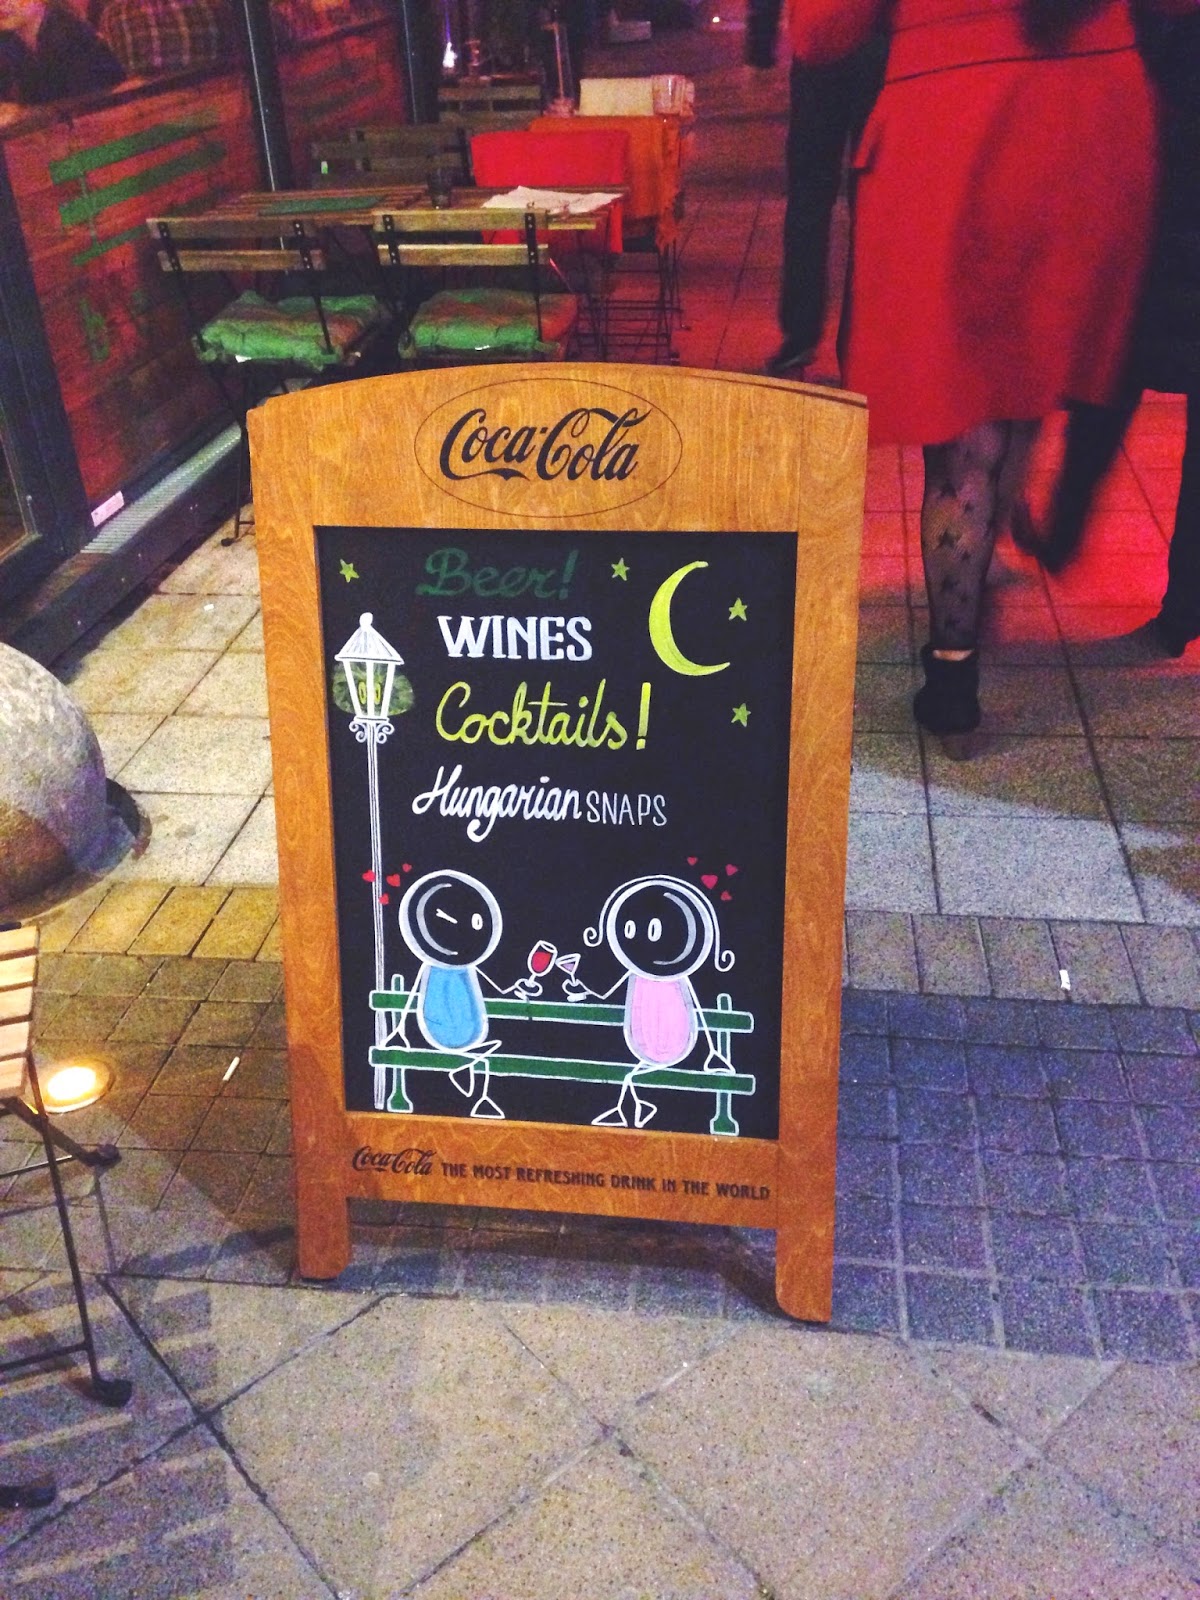 Coca-Cola
Beer!
WINES
Cocktails!
Hungarian SNAPS
Coca-Cola THE MOST REFRESHING DRINK IN THE WORLD